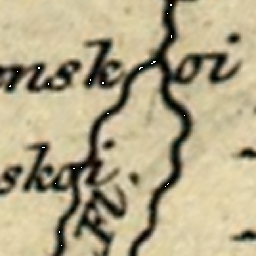 mskoi
skoi
Fl.